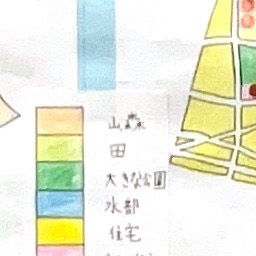 山森
田
大きな公園
水部
住宅